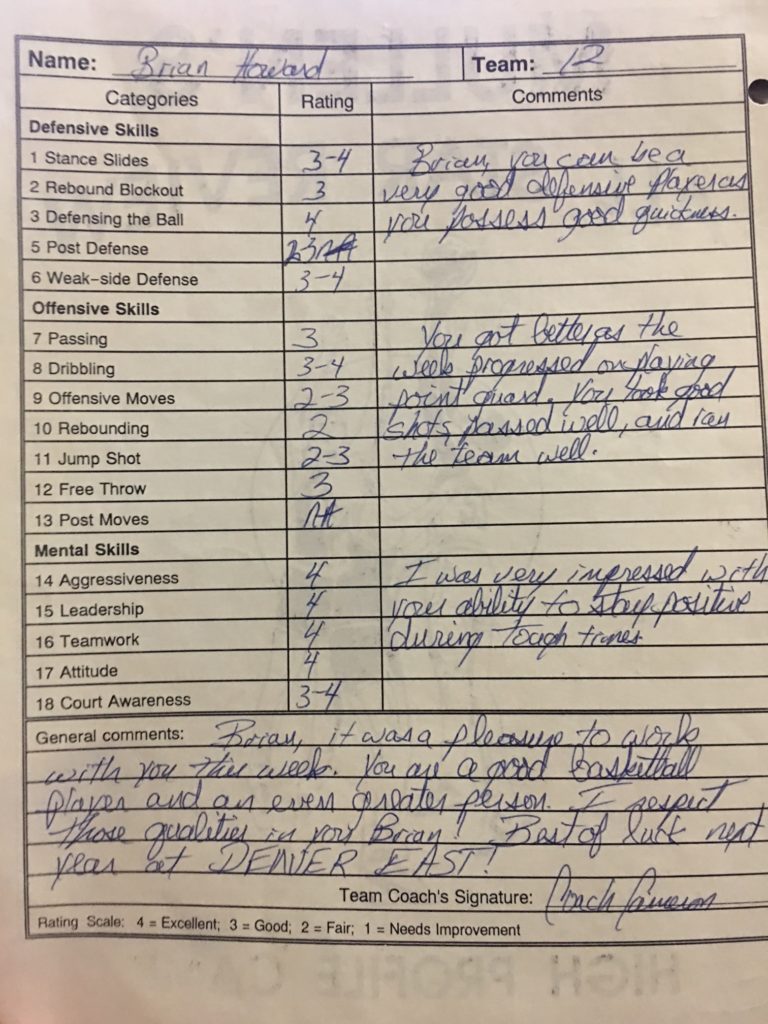 Name: Brian Howard Team: 12
Categories Rating Comments
Defensive Skills
1 Stance Slides 3-4 Brian, you can be a
2 Rebound Blockout 3 very good defensive player as
3 Defensing the Ball 4 you possess good quickness.
5 Post Defense 2-3
6 Weak-side Defense 3-4
Offensive Skills
7 Passing 3 You got better as the
8 Dribbling 3-4 week progressed on playing
9 Offensive Moves 2-3 point guard. You took good
10 Rebounding 2 shots, passed well, and ran
11 Jump Shot 2-3 the team well.
12 Free Throw 3
13 Post Moves NA
Mental Skills
14 Aggressiveness 4 I was very impressed with
15 Leadership 4 your ability to stay positive
16 Teamwork 4 during tough times
17 Attitude 4
18 Court Awareness 3-4
General comments: Brian, it was a pleasure to work
with you this week. You are a good basketball
player and an even greater person. I respect
those qualities in you Brian! Best of luck next
year at DENVER EAST!
Team Coach's Signature: Coach Cameron
Rating Scale: 4 = Excellent; 3 = Good; 2 = Fair; 1 = Needs Improvement
HIGH PROFILE CA